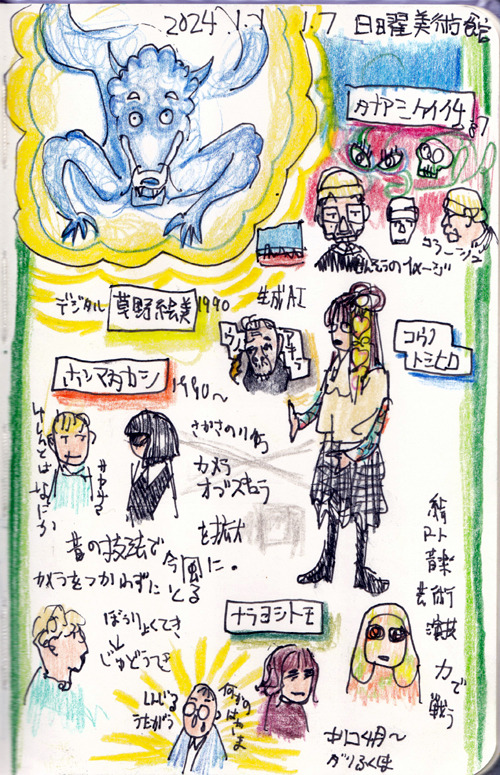 2024.1.1 1.7 日曜美術館
タナアミケイイチ
コラージュ
せんそうのイメージ
デジタル 草野絵美 1990
生成AI
ウノ アキラ
コウノトミヒロ
ホンマタカシ 1990〜
しゃしんとはなにか
さかさの
カメラ
オブスキュラ
を拡大
昔の技法で今風に。
カメラをつかわずにとる
絵コト
音楽
芸術
演技
力で
戦う
ナラヨシトモ
ぼうりょくてき
じゅどうてき
しんじる
うたがう
何かのはざま